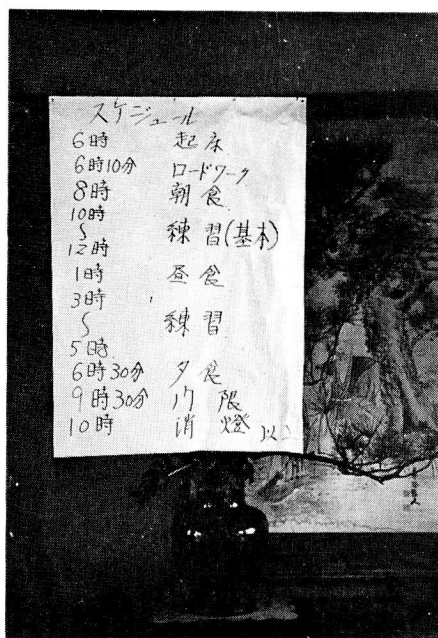 スケジュール
6時 起床
6時10分 ロードワーク
8時 朝食
10時
〜
12時 練習(基本)
1時 昼食
3時
〜 練習
5時
6時30分 夕食
9時30分 門限
10時 消燈 以上